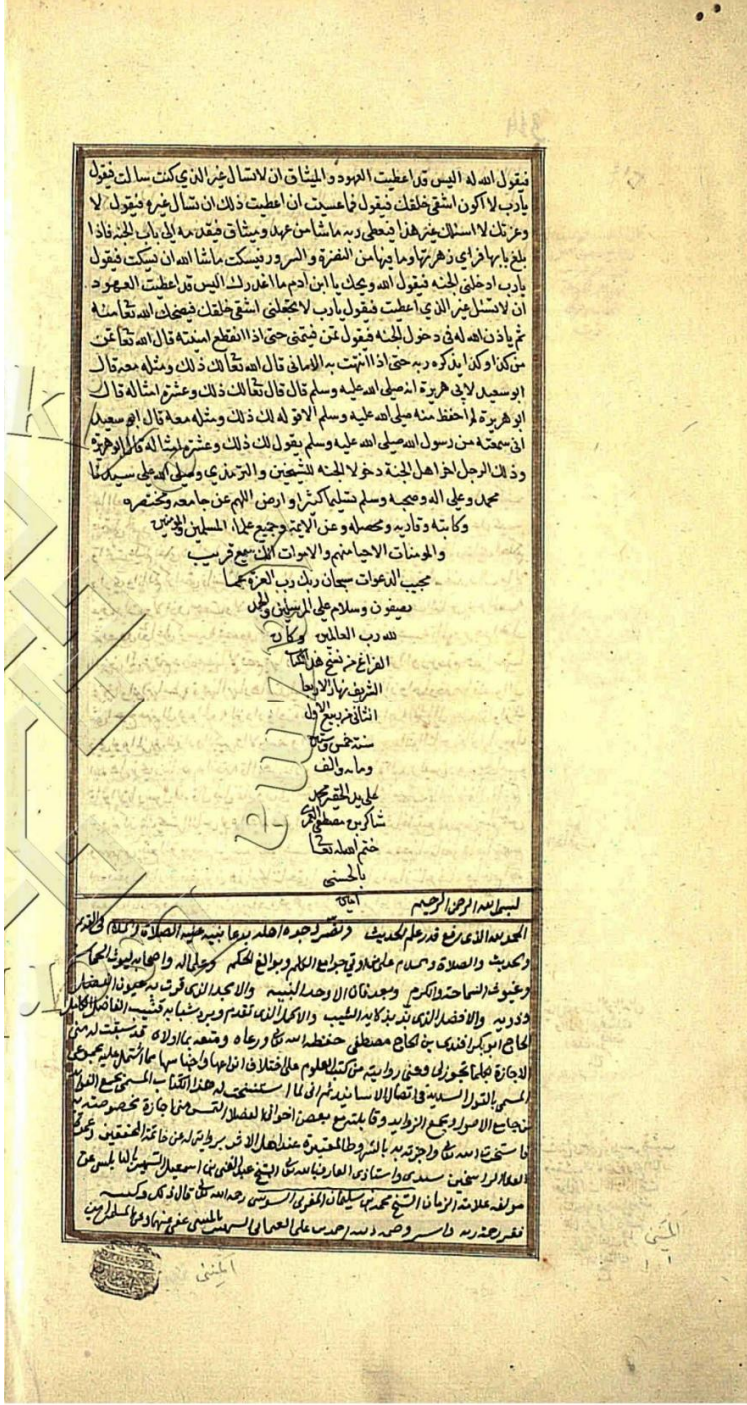 فيقول الله له اليس قد اعطيت العهود والميثاق ان لا تسال غير الذي كنت سالت فيقول
يارب لا اكون اشقى خلقك فيقول فما عسيت ان اعطيت ذلك ان تسال غيره فيقول لا
وعزتك لا اسئلك غير هذا فيعطي ربه ماشا من عهد وميثاق فيقدمه الى باب الجنه فاذا
بلغ بابها فراي زهرتها وما فيها من النضرة والسرور فيسكت ماشا الله ان يسكت فيقول
يارب ادخلني الجنه فيقول الله ويحك يا ابن ادم ما اغدرك اليس قد اعطيت العهود
ان لا تسئل غير الذي اعطيت فيقول يارب لا تجعلني اشقى خلقك فيضحك الله تعا منه
ثم ياذن الله له في دخول الجنه فيقول تمن فيتمنى حتى اذا انقطع امنيته قال الله تعا تمن
من كذا وكذا يذكره ربه حتى اذا انتهت به الاماني قال الله تعا لك ذلك ومثله معه قال
ابو سعيد لابي هريرة انه صلى الله عليه وسلم قال قال تعا لك ذلك وعشرة امثاله قال
ابو هريرة لم احفظ منه صلى الله عليه وسلم الا قوله لك ذلك ومثله معه قال ابو سعيد
اني سمعته من رسول الله صلى الله عليه وسلم يقول لك ذلك وعشرة امثاله قال ابو هريرة
وذلك الرجل اخر اهل الجنة دخولا الجنه للشيخين والترمذي وصلى الله على سيدنا
محمد وعلى اله وصحبه وسلم تسليما كثيرا وارض اللهم عن جامعه ومختصره
وكاتبه وقاريه ومحصله وعن الايمة وجميع علماء المسلمين والمومنين
والمومنات الاحيا منهم والاموات انك سميع قريب
مجيب الدعوات سبحان ربك رب العزة عما
يصفون وسلام على المرسلين والحمد
لله رب العالمين وكان
الفراغ من نسخ هذا الكتاب
الشريف نهار الاربعا
الثاني من ربيع الاول
سنة خمس وستين
ومايه والف
على يد الحقير محمد
شاكر بن مصطفى
ختم الله له تعا
بالحسنى
امين
بسم الله الرحمن الرحيم
الحمد لله الذي رفع قدر علم الحديث ونضر وجوه اهله بدعا نبيه عليه الصلاة والسلام في القديم
والحديث والصلاة والسلام على من اوتي جوامع الكلم وبوالغ الحكم وعلى اله واصحابه ليوث
وغيوث السماحة والكرم وبعد فان الاوحد النبيه والامجد الذي قرت به عيون الفضل
وذويه والافضل الذي والاكمل الذي تقدم شبابه الفاضل الكامل
الحاج ابو بكر افندي بن الحاج مصطفى حفظه الله تعا ورعاه ومتعه بما اولاه قد سبقت له مني
الاجازة بكلما تجوز لي وعني روايته من كتب العلوم على اختلاف انواعها واجناسها مما اشتمل عليه مجموعي
المسمى بالقول السديد في اتصال الاسانيد ثم انه لما استنسخت له هذا الكتاب المسمى بجمع الفوايد
من جامع الاصول ومجمع الزوايد وقابلته مع بعض اخوانه الفضلا التمس مني اجازة مخصوصة به
فاستخرت الله تعا واجزته به بالشروط المعتبرة عند اهل الاثر بروايتي له عن خاتمة المحققين وعمدة
العلما الراسخين سيدي واستاذي العارف بالله تعا الشيخ عبد الغني بن اسمعيل الشهير بالنابلسي عن
مولفه علامة الزمان الشيخ محمد بن سليمان المغربي السوسي رحمه الله تعا قال ذلك وكتبه
فقير رحمة ربه احمد بن علي العثماني الشهير بالمنيني عفي عنهما وعن المسلمين امين